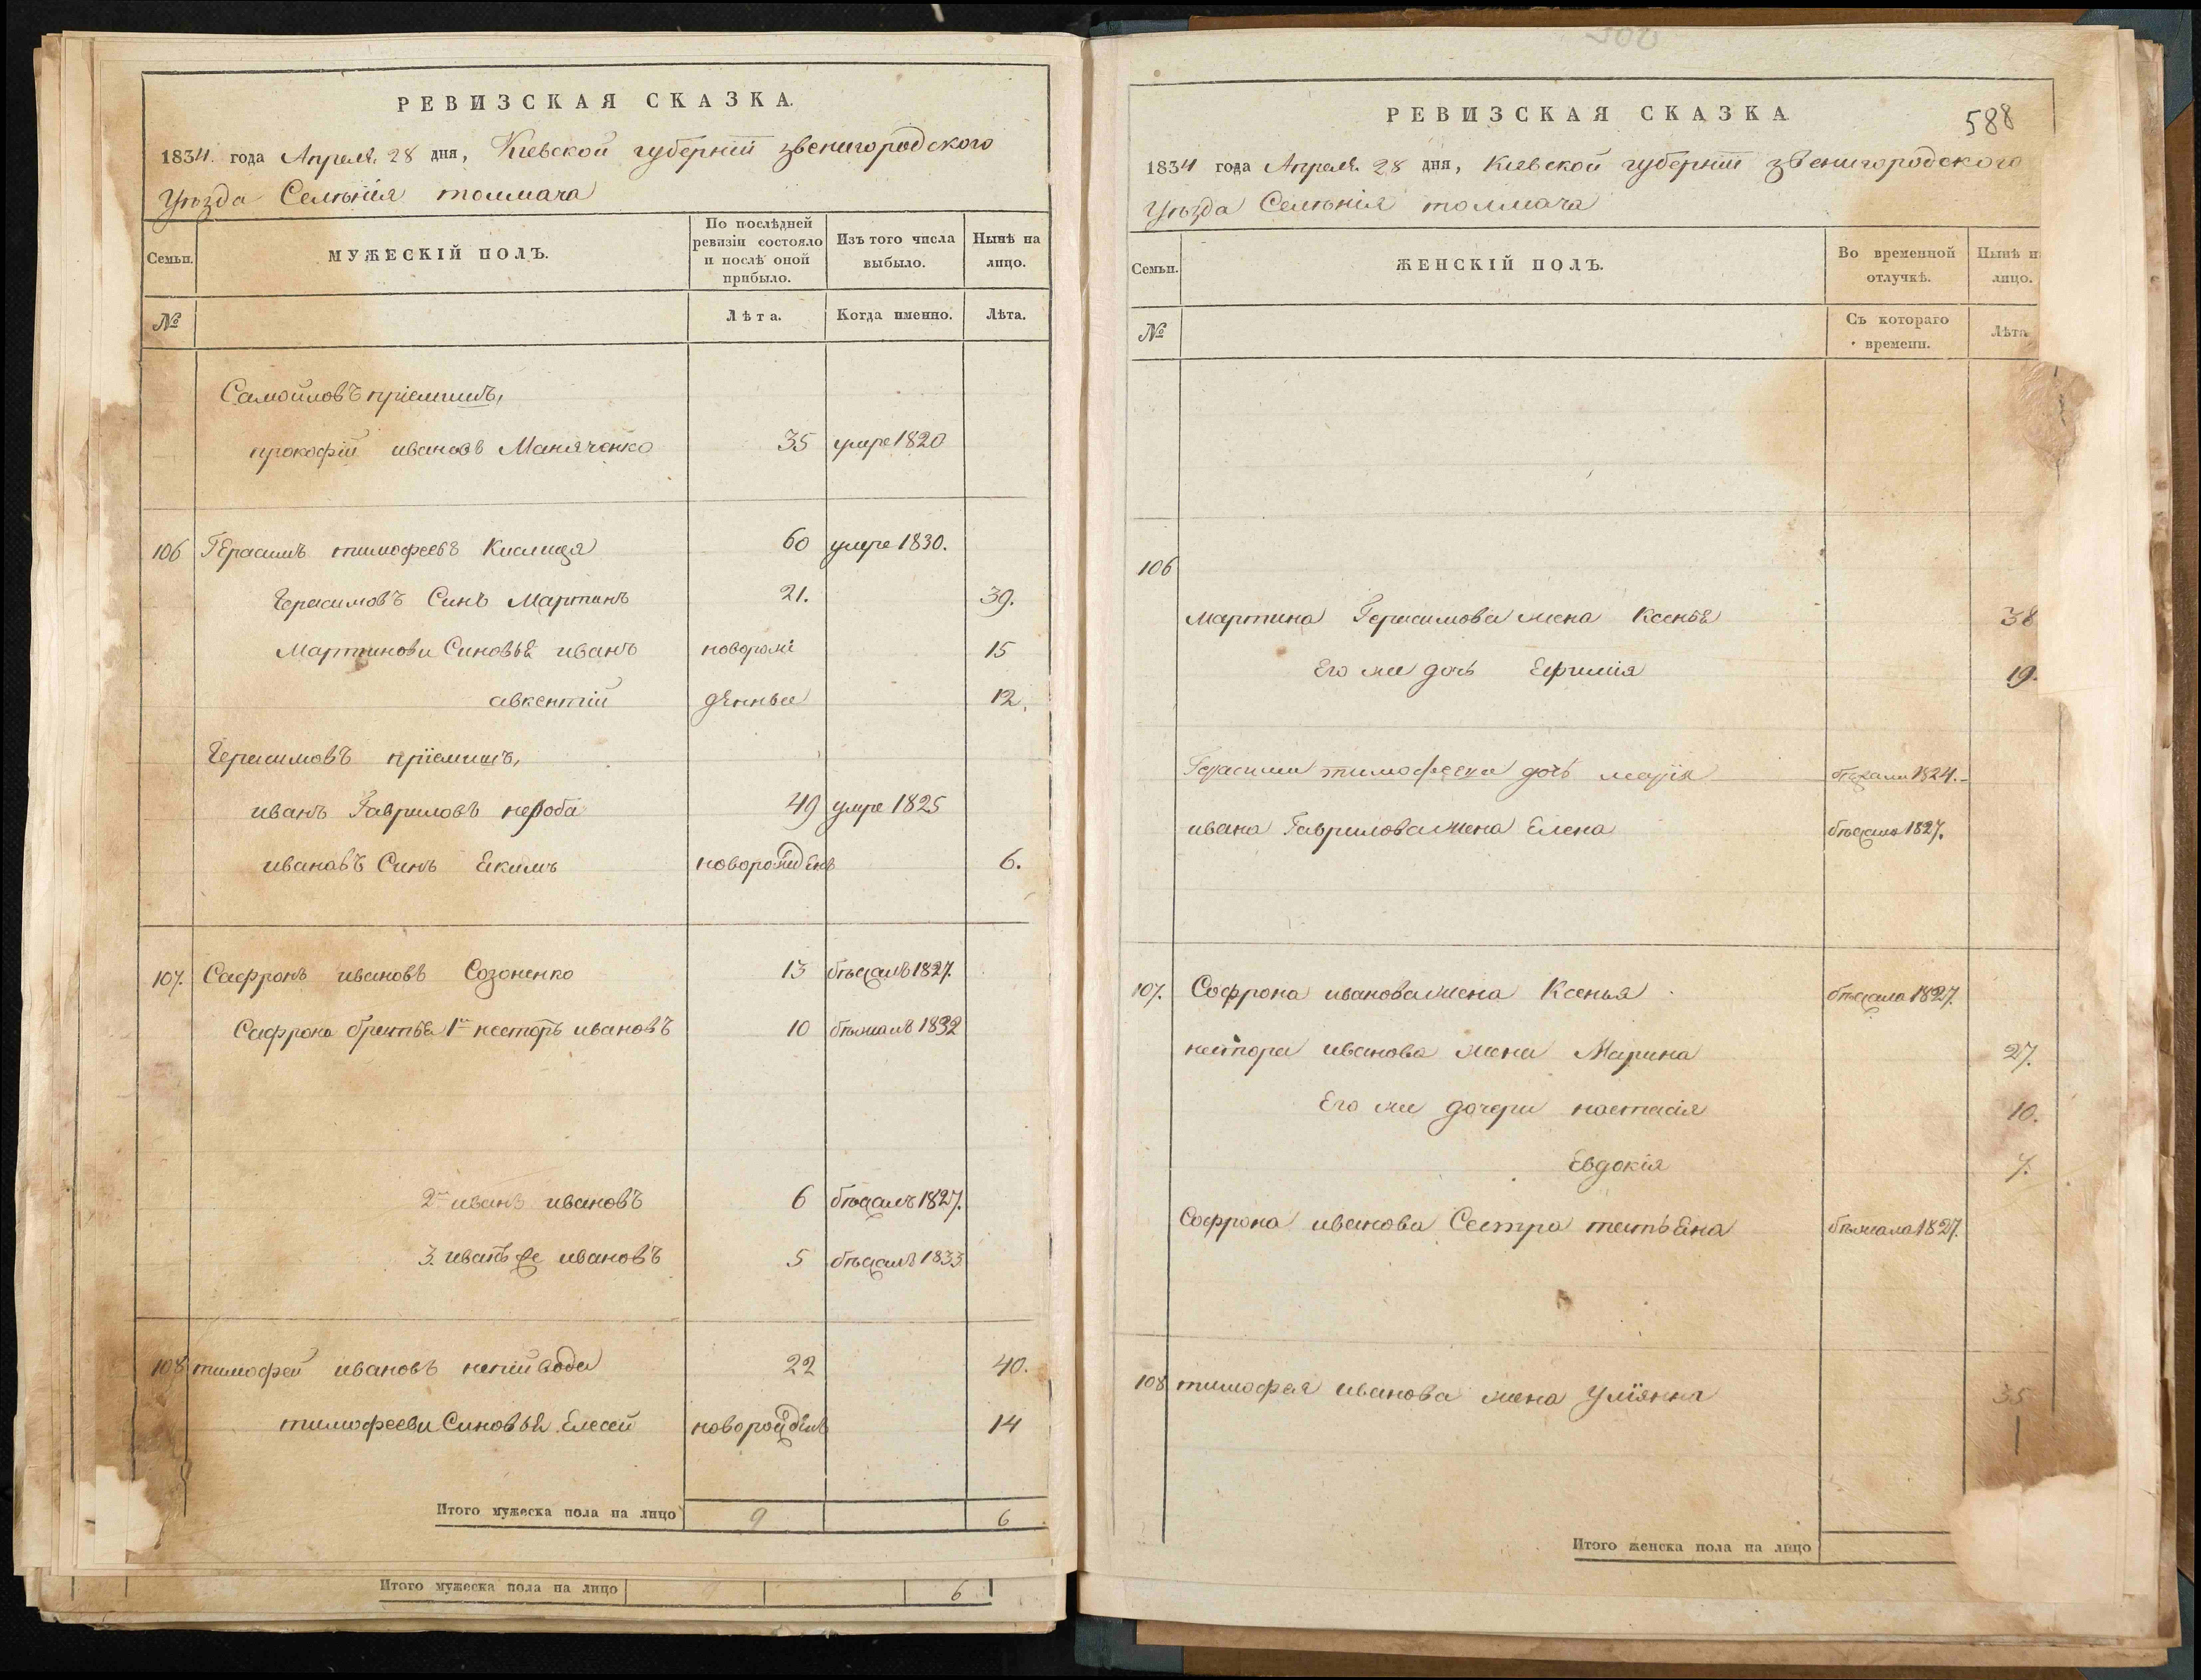 РЕВИЗСКАЯ СКАЗКА.
1834. года Апреля 28 дня, Киевской губерніи звенигородского
Уѣзда Селѣнія толмача
Семьи.
МУЖЕСКІЙ ПОЛЪ.
По послѣдней ревизіи состояло и послѣ оной прибыло.
Изъ того числа выбыло.
Нынѣ на лицо.
№
Лѣта.
Когда именно.
Лѣта.
Самойловъ пріемишъ,
прокофій ивановъ Маняченко 35 умре 1820
106 Герасимъ тимофеевъ Кислиця 60 умре 1830.
Герасимовъ Синъ Мартинъ 21. 39.
Мартинови Синовья иванъ новорож 15
авкентій денные 12.
Герасимовъ пріемишъ,
иванъ Гавриловъ нероба 49 умре 1825
ивановъ Синъ Екимъ новорожденъ 6.
107. Сафронъ ивановъ Созоненко 13 бѣжалъ 1827.
Сафрона братья 1й несторъ ивановъ 10 бѣжалъ 1832
2й иванъ ивановъ 6 бѣжалъ 1827.
3. иванъ же ивановъ 5 бѣжалъ 1833
108 тимофей ивановъ непійвода 22 40.
тимофееви Синовья Елесей новорожденъ 14
Итого мужеска пола на лицо 9 6
Итого мужеска пола на лицо 9 6
РЕВИЗСКАЯ СКАЗКА
588
1834 года Апреля 28 дня, Киевской губерніи звенигородского
Уѣзда Селѣнія толмача
Семьи.
ЖЕНСКІЙ ПОЛЪ.
Во временной отлучкѣ.
Нынѣ н лицо.
№
Съ котораго времени.
Лѣта
106
мартина Герасимова жена Ксенья 38
Его же дочь Ефимія 19.
Герасима тимофеева дочь марія бѣжала 1824.
ивана Гаврилова жена Елена бѣжала 1827.
107. Софрона иванова жена Ксенья бѣжала 1827.
нестора иванова жена Марина 27.
Его же дочери настасія 10.
Евдокія 7.
Софрона иванова Сестра татьяна бѣжала 1827.
108 тимофея иванова жена Уліянна 35
Итого женска пола на лицо